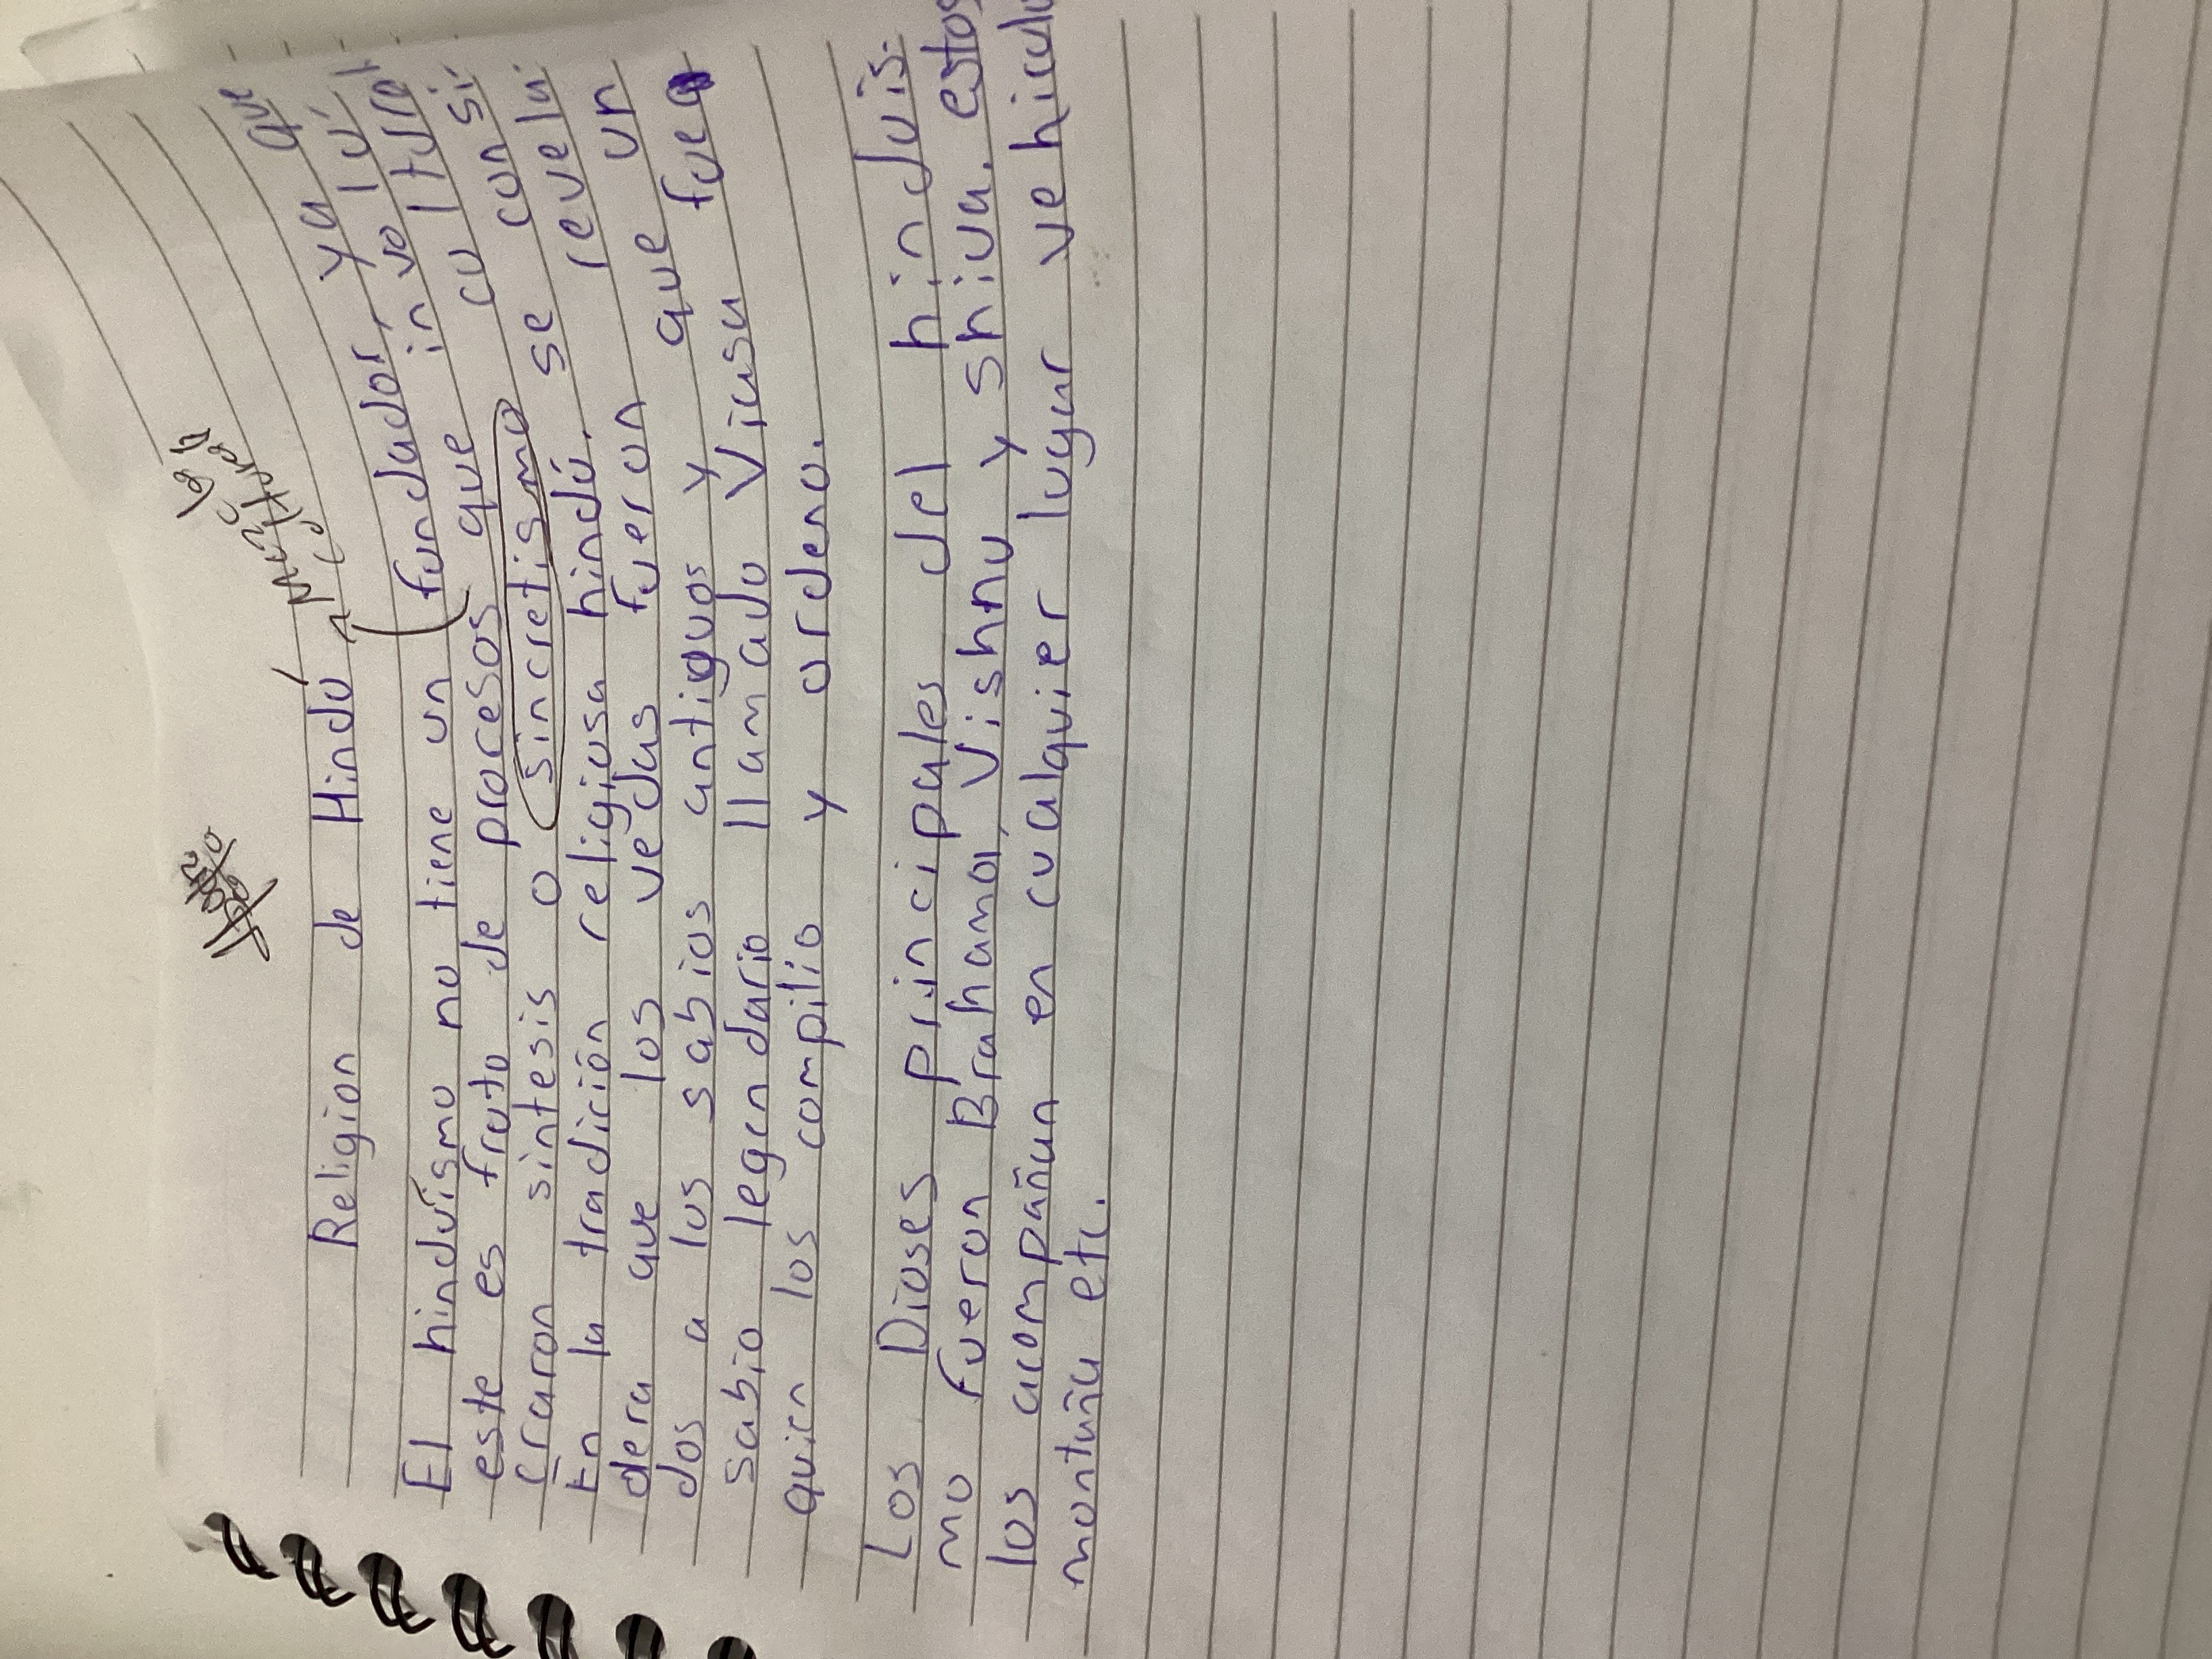 Religion de Hindú
El hinduísmo no tiene un fundador, ya que
este es fruto de procesos que involu
craron sintesis o sincretismo cultural
En la tradición religiosa hindú. se consi
dera que los vedas fueron revela
dos a los sabios antiguos y que fue un
sabio legendario llamado Viasa
quien los compilio y ordeno.
Los Dioses principales del hinduis
mo fueron Brahama, Vishnu y shiva. estos
los acompañan en cualquier lugar vehiculo
montaña etc.